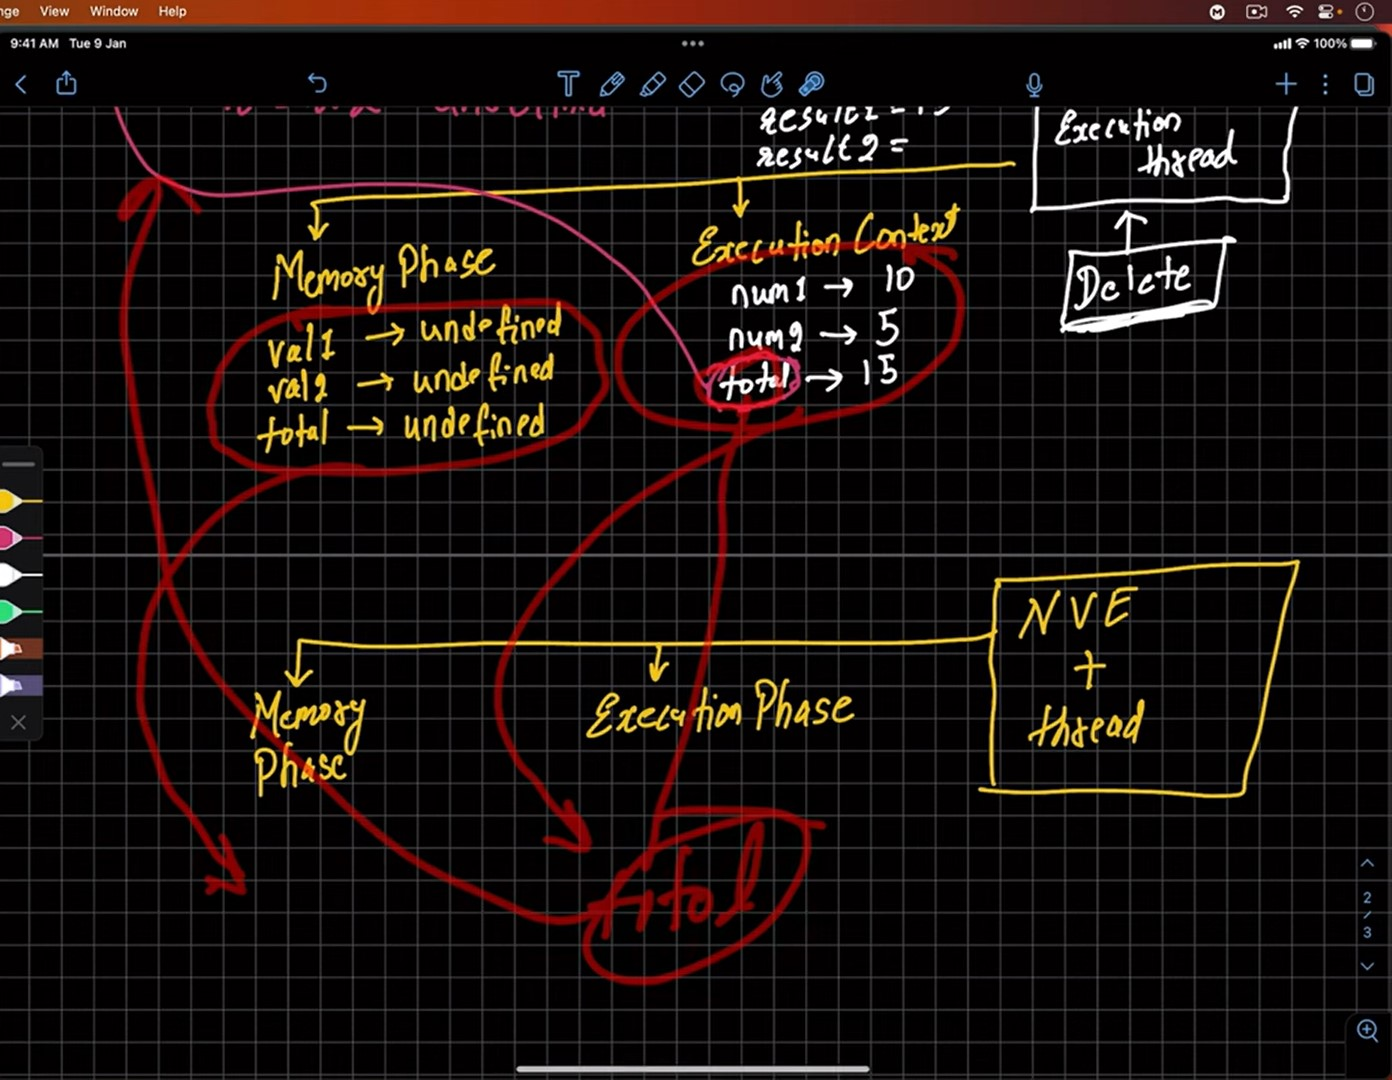 nge View Window Help
9:41 AM Tue 9 Jan
100%
undefined
result2 =
Execution
thread
Memory Phase
val1 → undefined
val2 → undefined
total → undefined
Execution Context
num1 → 10
num2 → 5
total → 15
Delete
NVE
+
thread
Memory
Phase
Execution Phase
total
2
/
3